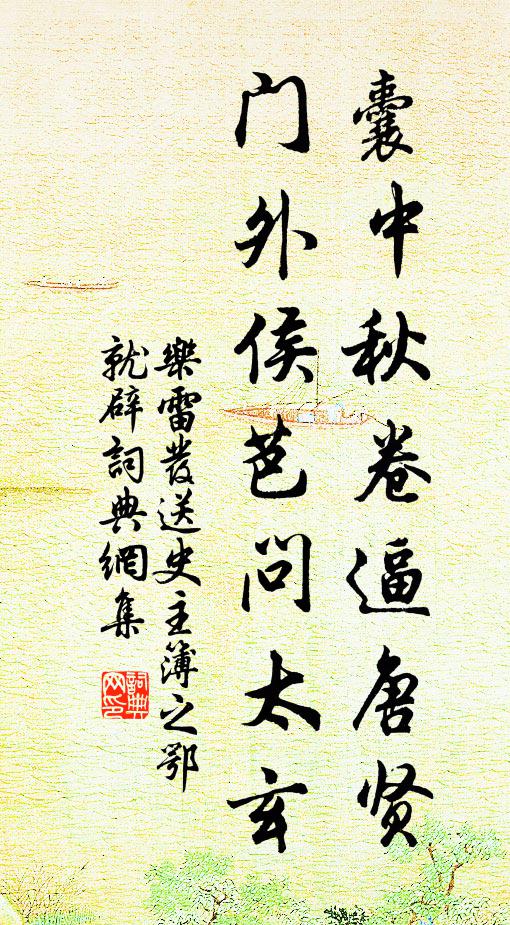 囊中秋卷逼唐贤
门外侯芭问太玄
樂雷發送史主簿之鄂
就辟詞典網集
詞典网印